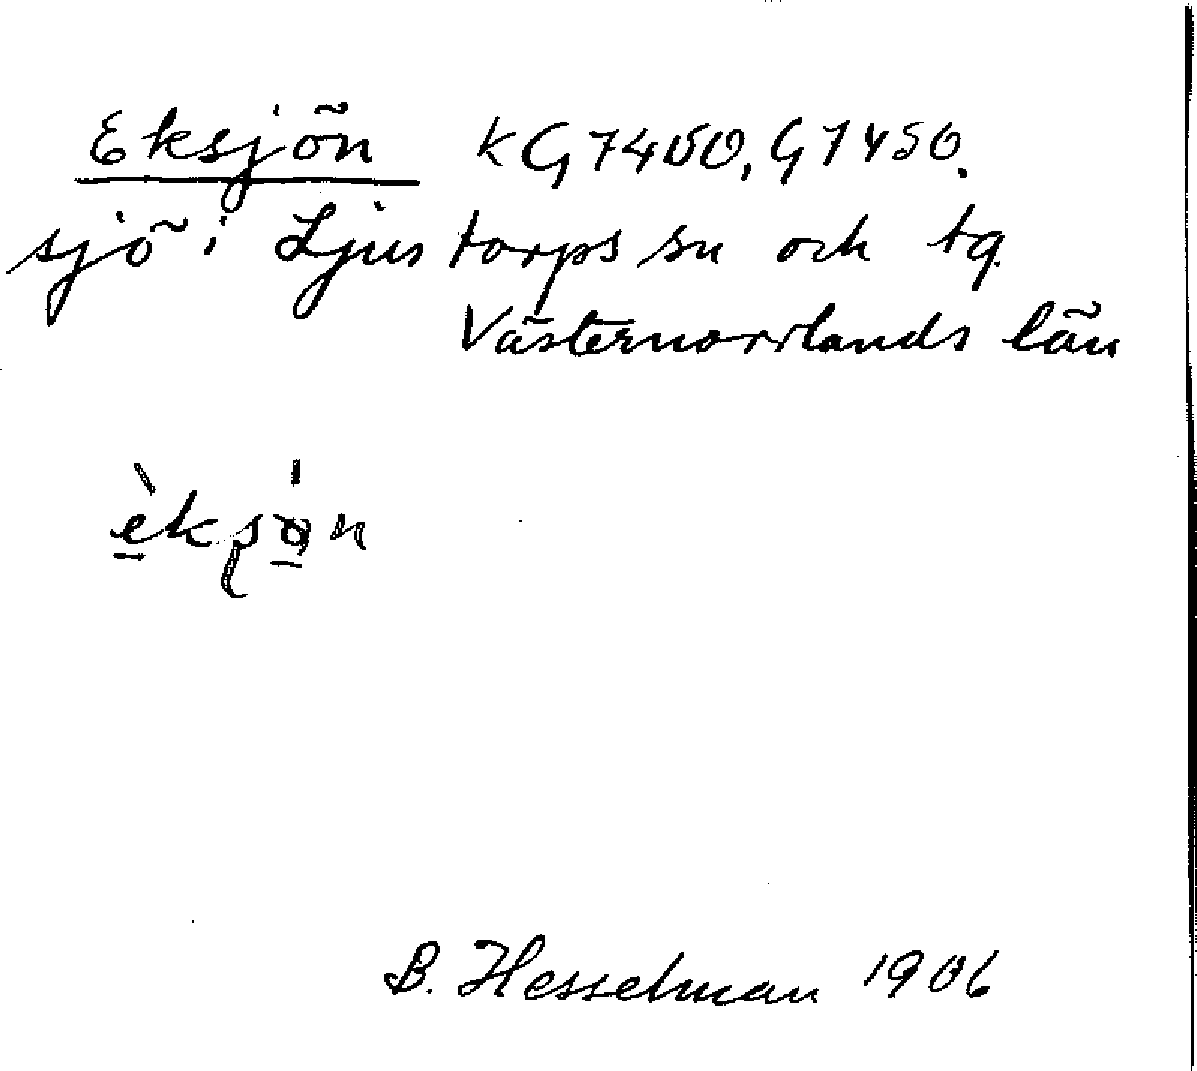 Eksjön KG7450, G7450.
sjö i Ljustorps sn och tg
Västernorrlands län
B. Hesselman 1906